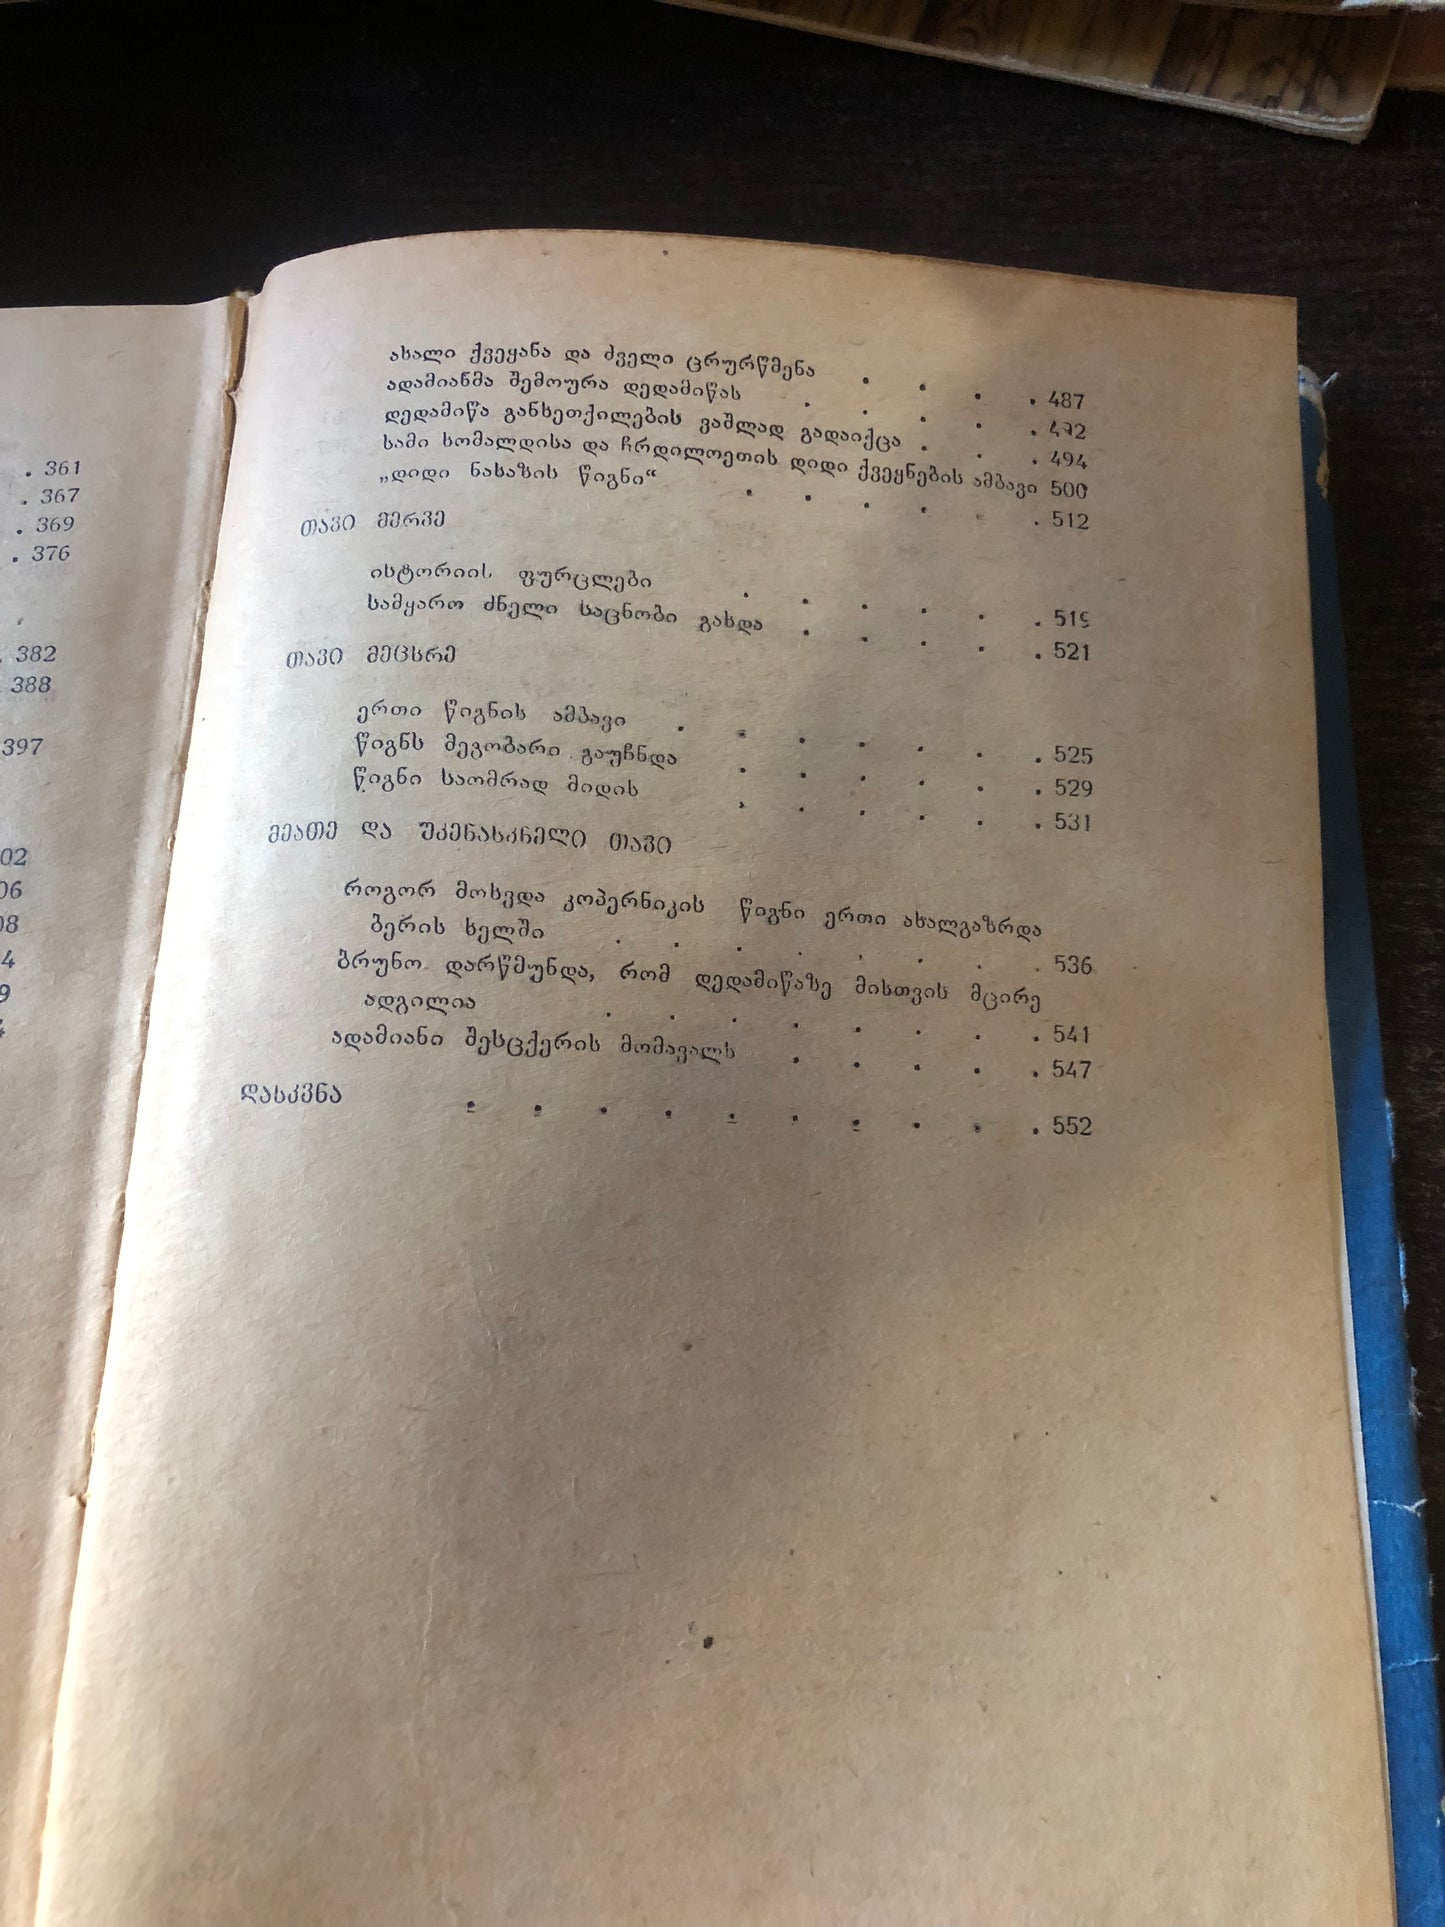 . 361
. 367
. 369
. 376
. 382
388
397
ახალი ქვეყანა და ძველი ცრურწმენა . . . . 487
ადამიანმა შემოუარა დედამიწას . . . . . 492
დედამიწა განხეთქილების ვაშლად გადაიქცა . . . 494
სამი სომალდისა და ჩრდილოეთის დიდი ქვეყნების ამბავი 500
„დიდი ნახაზის წიგნი“ . . . . . . 512
ᲗᲐᲕᲘ ᲛᲔᲠᲕᲔ
ისტორიის ფურცლები . . . . . .
სამყარო ძნელი საცნობი გახდა . . . . . 521
ᲗᲐᲕᲘ ᲛᲔᲪᲮᲠᲔ
ერთი წიგნის ამბავი . . . . . . . 525
წიგნს მეგობარი გაუჩნდა . . . . . . 529
წიგნი საომრად მიდის . . . . . . 531
ᲛᲔᲐᲗᲔ ᲓᲐ ᲣᲙᲔᲜᲐᲡᲙᲜᲔᲚᲘ ᲗᲐᲕᲘ
როგორ მოხვდა კოპერნიკის წიგნი ერთი ახალგაზრდა
ბერის ხელში . . . . . . . . 536
ბრუნო დარწმუნდა, რომ დედამიწაზე მისთვის მცირე
ადგილია . . . . . . . . 541
ადამიანი შესცქერის მომავალს . . . . . 547
ᲓᲐᲡᲙᲕᲜᲐ . . . . . . . . . . 552